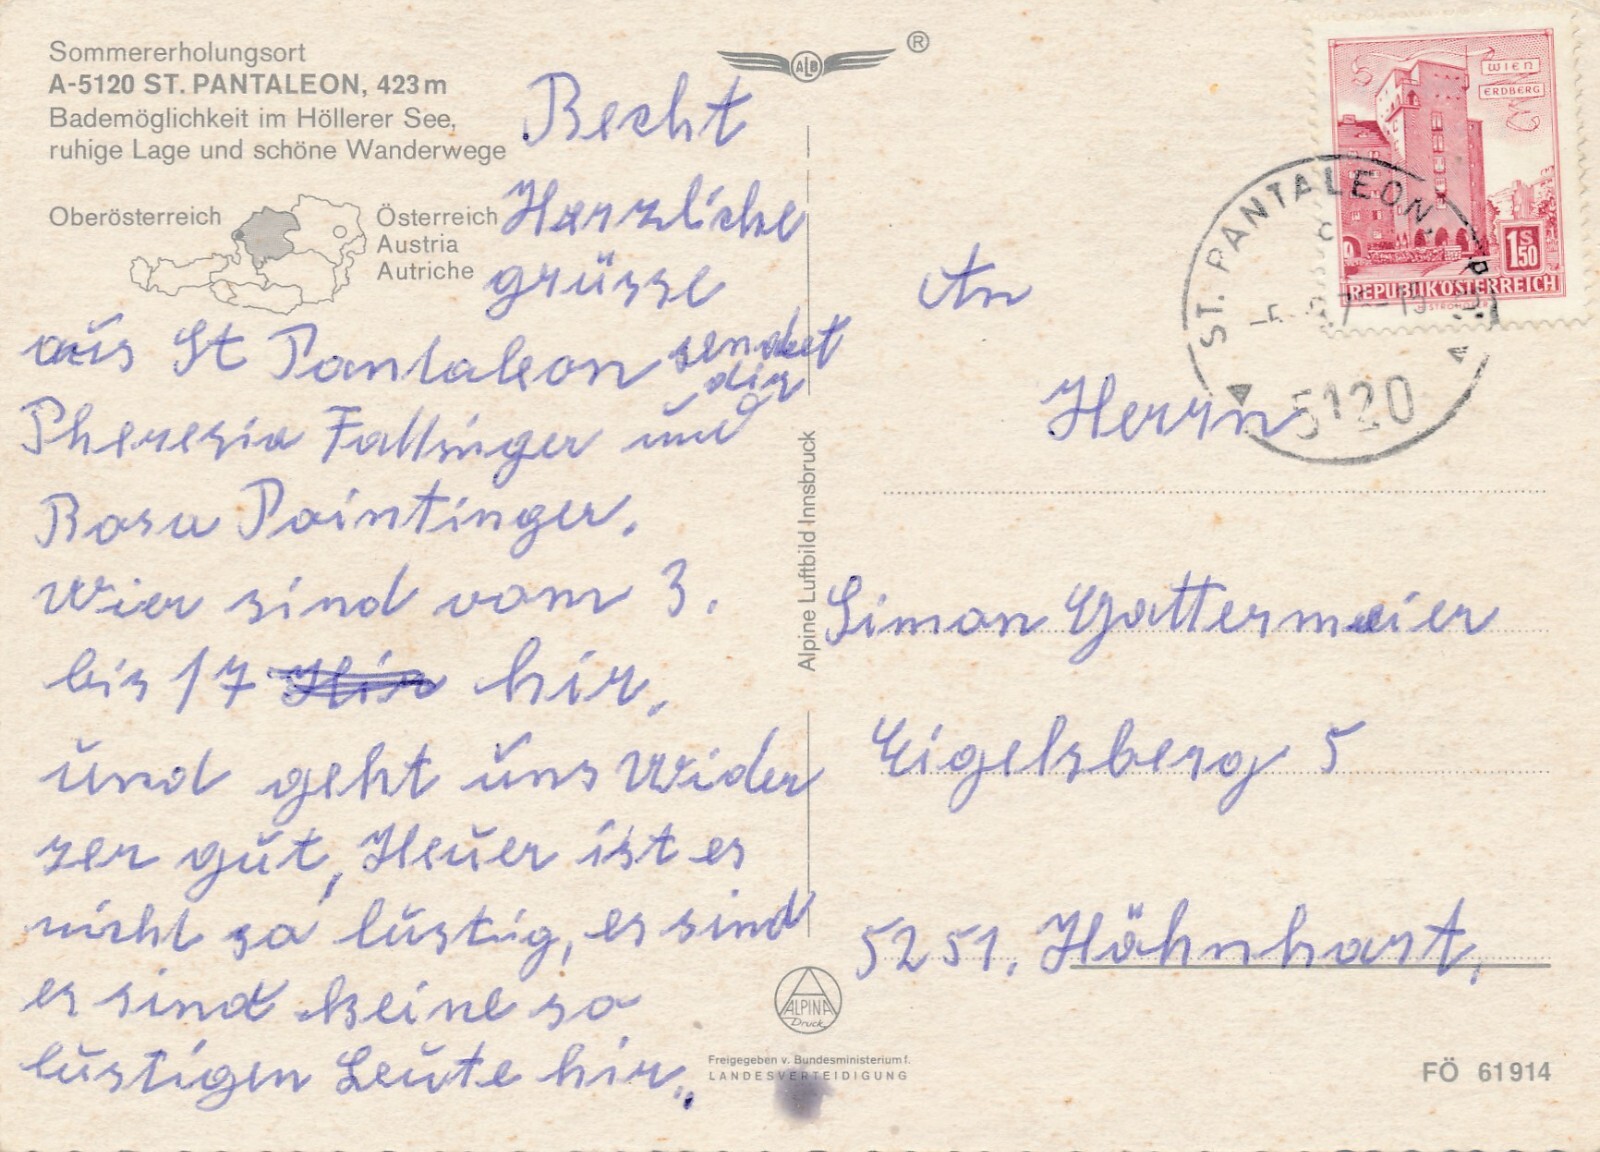 Sommererholungsort
A-5120 ST. PANTALEON, 423 m
Bademöglichkeit im Höllerer See,
ruhige Lage und schöne Wanderwege
Oberösterreich
Österreich
Austria
Autriche
ALB
®
Recht
Herzliche
grüsse
aus St Pantaleon sendet
dir
Theresia Fallinger und
Rosa Paintinger.
Wier sind vom 3.
bis 17 hir.
und geht uns Wider
zer gut, Heuer ist es
nicht so lustig, es sind
es sind keine so
lustigen Leute hir.
Alpine Luftbild Innsbruck
ALPINA
Druck
Freigegeben v. Bundesministerium f.
LANDESVERTEIDIGUNG
WIEN
ERDBERG
1S50
REPUBLIK ÖSTERREICH
ST. PANTALEON
5120
An
Herrn
Simon Gattermaier
Eigelsberg 5
5251, Höhnhart,
FÖ 61914